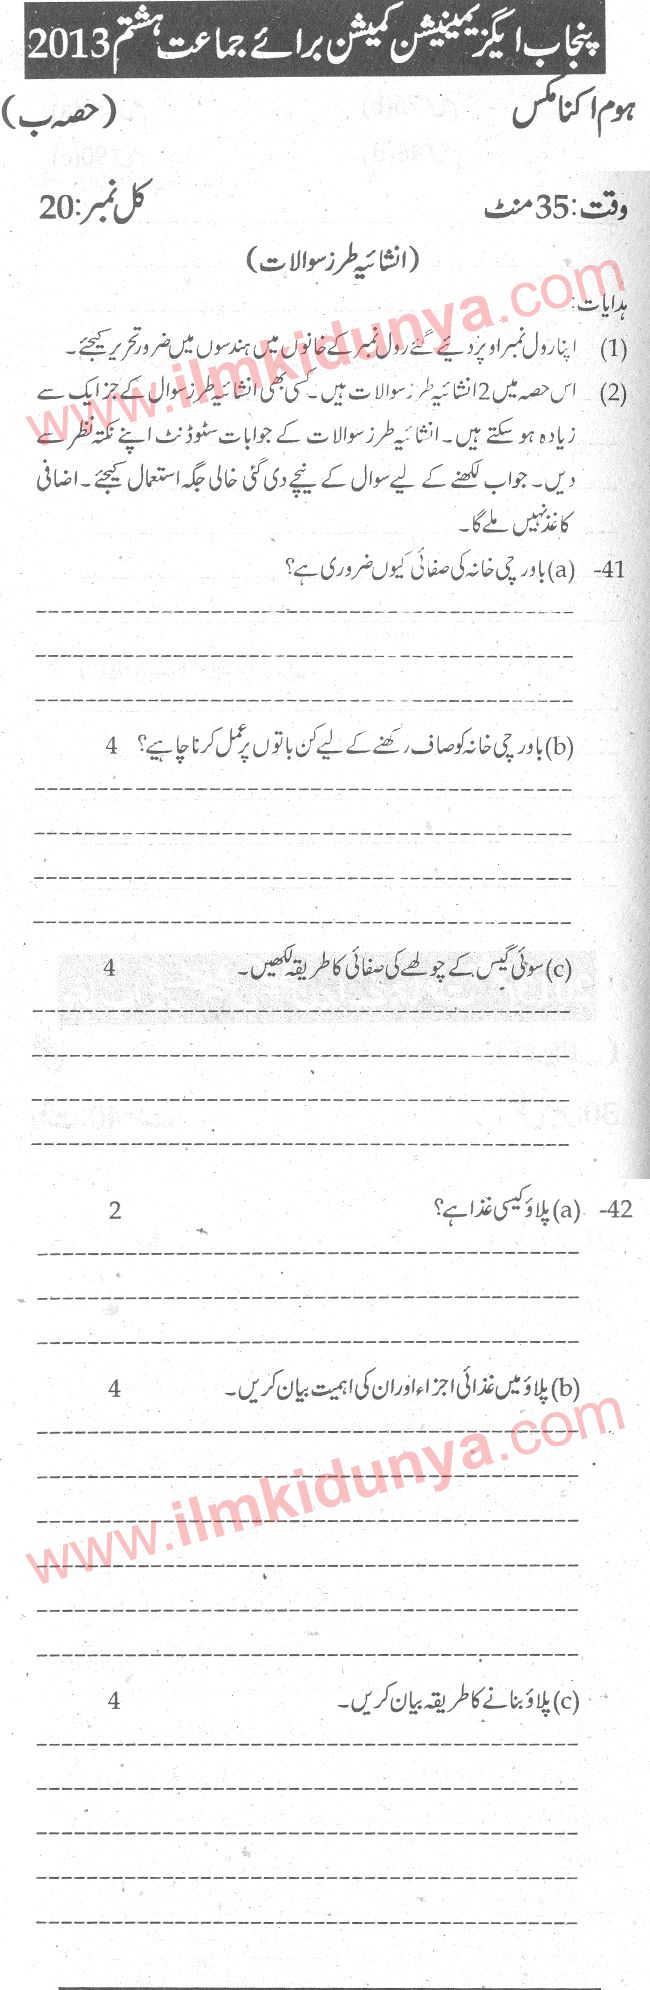 پنجاب ایگزیمینیشن کمیشن برائے جماعت ہشتم 2013
ہوم اکنامکس (حصہ ب)
وقت: 35 منٹ کل نمبر: 20
(انشائیہ طرز سوالات)
ہدایات:
(1) اپنا رول نمبر اوپر دئیے گئے رول نمبر کے خانوں میں ہندسوں میں ضرور تحریر کیجئے۔
(2) اس حصہ میں 2 انشائیہ طرز سوالات ہیں۔ کسی بھی انشائیہ طرز سوال کے جز ایک سے
زیادہ ہو سکتے ہیں۔ انشائیہ طرز سوالات کے جوابات سٹوڈنٹ اپنے نکتہ نظر سے
دیں۔ جواب لکھنے کے لیے سوال کے نیچے دی گئی خالی جگہ استعمال کیجئے۔ اضافی
کاغذ نہیں ملے گا۔
www.ilmkidunya.com
41- (a) باورچی خانہ کی صفائی کیوں ضروری ہے؟
(b) باورچی خانہ کو صاف رکھنے کے لیے کن باتوں پر عمل کرنا چاہیے؟ 4
(c) سوئی گیس کے چولھے کی صفائی کا طریقہ لکھیں۔ 4
42- (a) پلاؤ کیسی غذا ہے؟ 2
(b) پلاؤ میں غذائی اجزاء اور ان کی اہمیت بیان کریں۔ 4
www.ilmkidunya.com
(c) پلاؤ بنانے کا طریقہ بیان کریں۔ 4